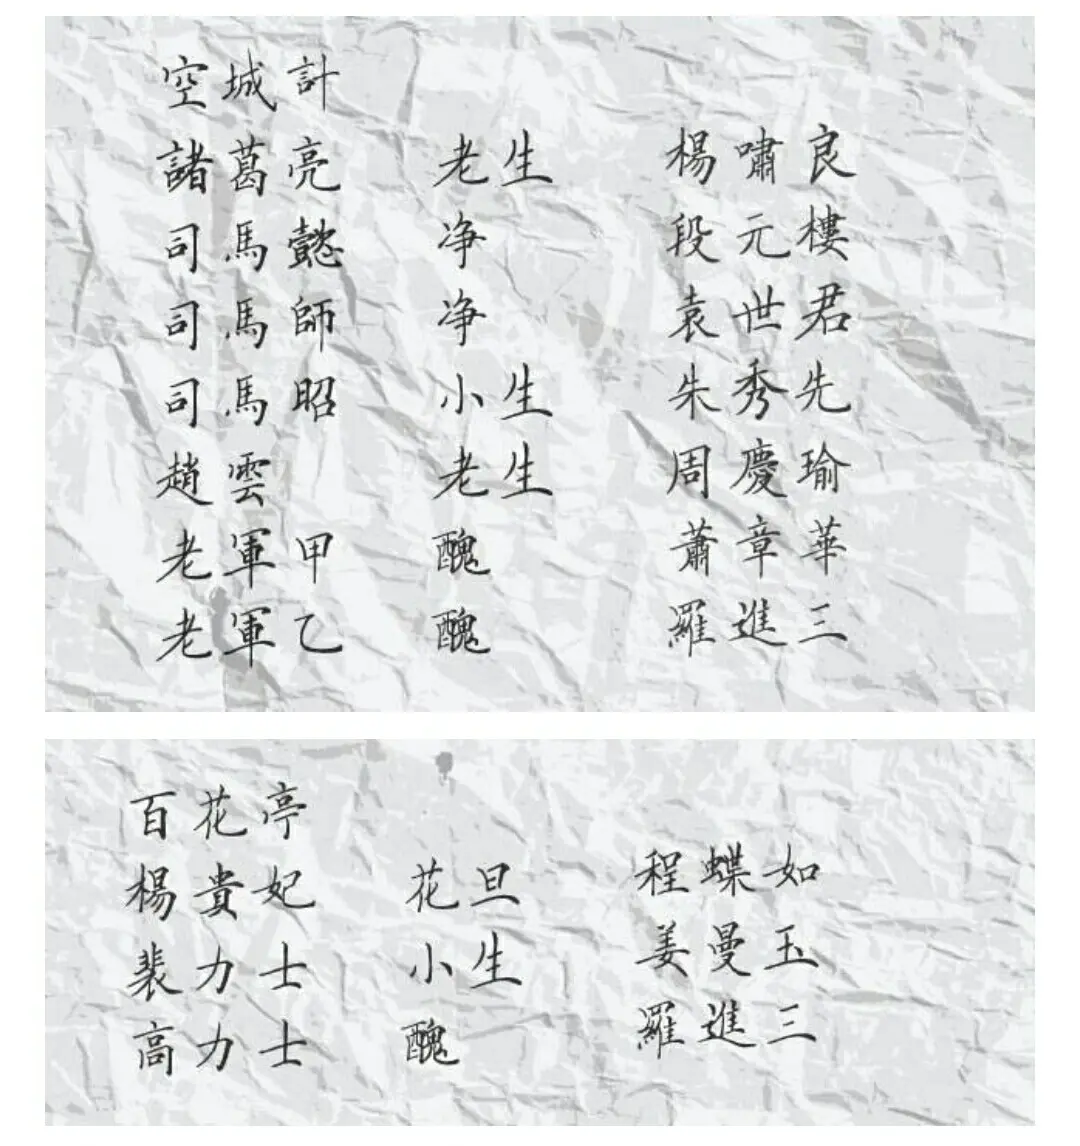 空城計
諸葛亮 老生 楊嘯良
司馬懿 净 段元樓
司馬師 净 袁世君
司馬昭 小生 朱秀先
趙雲 老生 周慶瑜
老軍甲 醜 蕭章華
老軍乙 醜 羅進三
百花亭
楊貴妃 花旦 程蝶如
裴力士 小生 姜曼玉
高力士 醜 羅進三